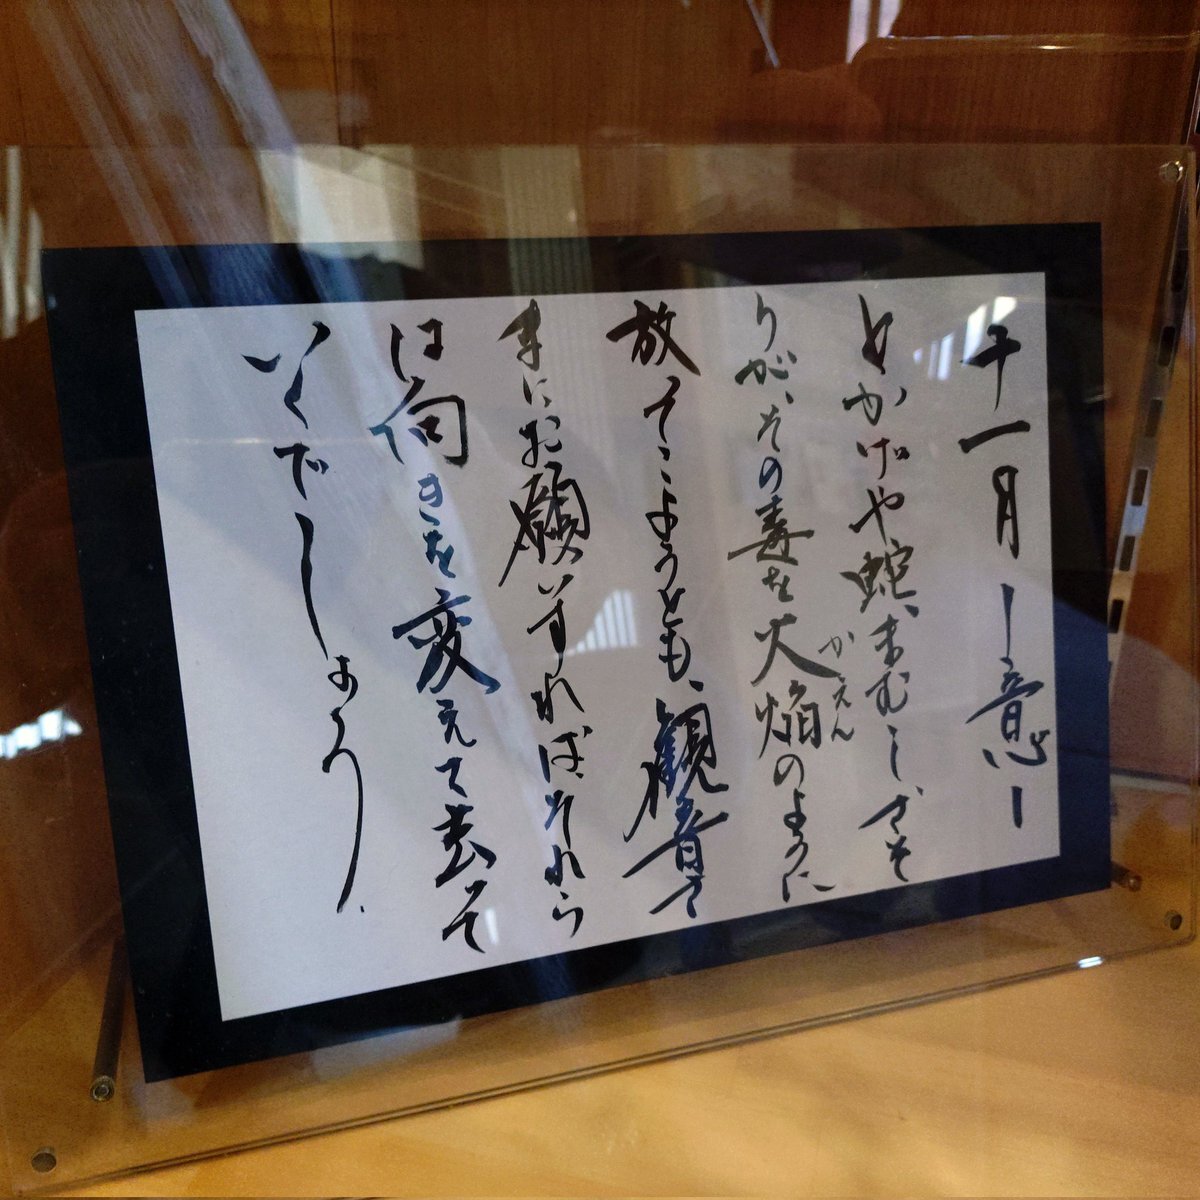 十一月 ー意ー
とかげや蛇、まむし、さそ
りが、その毒を火焔のように
かえん
放てこようとも、観音さ
まにお願いすれば、それら
は向きを変えて去って
いくでしょう。